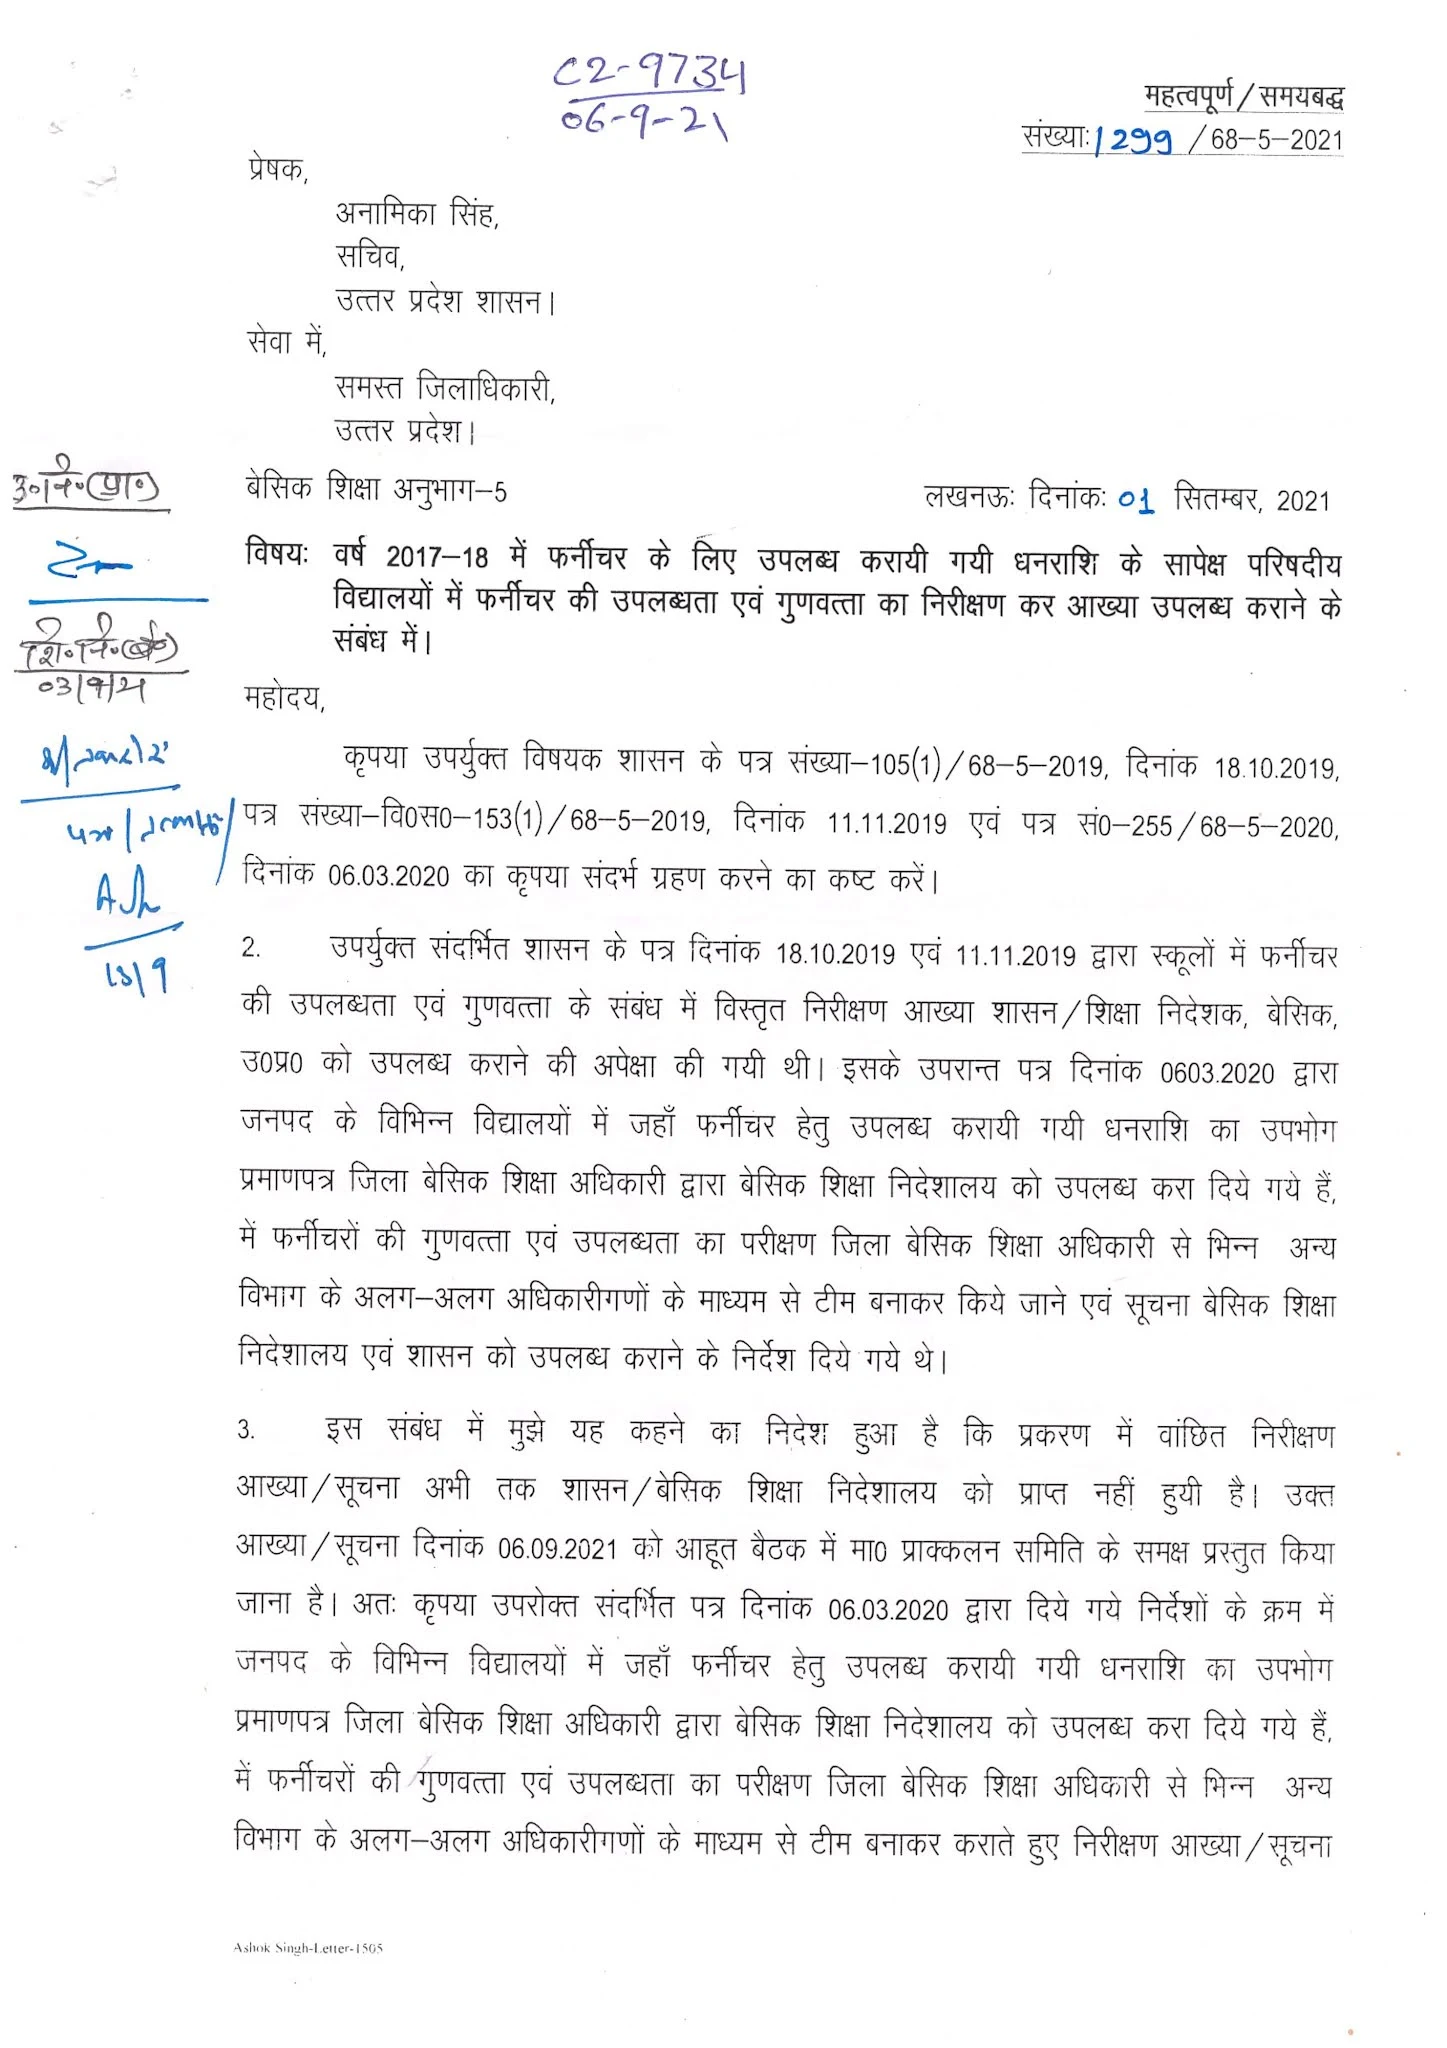 C2-9734
06-9-21
महत्वपूर्ण/समयबद्ध
संख्याः1299/68-5-2021
प्रेषक,
अनामिका सिंह,
सचिव,
उत्तर प्रदेश शासन।
सेवा में,
समस्त जिलाधिकारी,
उत्तर प्रदेश।
उ०नि०(प्रा०)
शि०नि०(बे०)
03/9/21
13/9
बेसिक शिक्षा अनुभाग-5
लखनऊः दिनांकः 01 सितम्बर, 2021
विषयः वर्ष 2017-18 में फर्नीचर के लिए उपलब्ध करायी गयी धनराशि के सापेक्ष परिषदीय
विद्यालयों में फर्नीचर की उपलब्धता एवं गुणवत्ता का निरीक्षण कर आख्या उपलब्ध कराने के
संबंध में।
महोदय,
कृपया उपर्युक्त विषयक शासन के पत्र संख्या-105(1)/68-5-2019, दिनांक 18.10.2019,
पत्र संख्या-वि0स0-153(1)/68-5-2019, दिनांक 11.11.2019 एवं पत्र सं0-255/68-5-2020,
दिनांक 06.03.2020 का कृपया संदर्भ ग्रहण करने का कष्ट करें।
2. उपर्युक्त संदर्भित शासन के पत्र दिनांक 18.10.2019 एवं 11.11.2019 द्वारा स्कूलों में फर्नीचर
की उपलब्धता एवं गुणवत्ता के संबंध में विस्तृत निरीक्षण आख्या शासन/शिक्षा निदेशक, बेसिक,
उ0प्र0 को उपलब्ध कराने की अपेक्षा की गयी थी। इसके उपरान्त पत्र दिनांक 0603.2020 द्वारा
जनपद के विभिन्न विद्यालयों में जहाँ फर्नीचर हेतु उपलब्ध करायी गयी धनराशि का उपभोग
प्रमाणपत्र जिला बेसिक शिक्षा अधिकारी द्वारा बेसिक शिक्षा निदेशालय को उपलब्ध करा दिये गये हैं,
में फर्नीचरों की गुणवत्ता एवं उपलब्धता का परीक्षण जिला बेसिक शिक्षा अधिकारी से भिन्न अन्य
विभाग के अलग-अलग अधिकारीगणों के माध्यम से टीम बनाकर किये जाने एवं सूचना बेसिक शिक्षा
निदेशालय एवं शासन को उपलब्ध कराने के निर्देश दिये गये थे।
3. इस संबंध में मुझे यह कहने का निदेश हुआ है कि प्रकरण में वांछित निरीक्षण
आख्या/सूचना अभी तक शासन/बेसिक शिक्षा निदेशालय को प्राप्त नहीं हुयी है। उक्त
आख्या/सूचना दिनांक 06.09.2021 को आहूत बैठक में मा0 प्राक्कलन समिति के समक्ष प्रस्तुत किया
जाना है। अतः कृपया उपरोक्त संदर्भित पत्र दिनांक 06.03.2020 द्वारा दिये गये निर्देशों के क्रम में
जनपद के विभिन्न विद्यालयों में जहाँ फर्नीचर हेतु उपलब्ध करायी गयी धनराशि का उपभोग
प्रमाणपत्र जिला बेसिक शिक्षा अधिकारी द्वारा बेसिक शिक्षा निदेशालय को उपलब्ध करा दिये गये हैं,
में फर्नीचरों की गुणवत्ता एवं उपलब्धता का परीक्षण जिला बेसिक शिक्षा अधिकारी से भिन्न अन्य
विभाग के अलग-अलग अधिकारीगणों के माध्यम से टीम बनाकर कराते हुए निरीक्षण आख्या/सूचना
Ashok Singh-Letter-1505